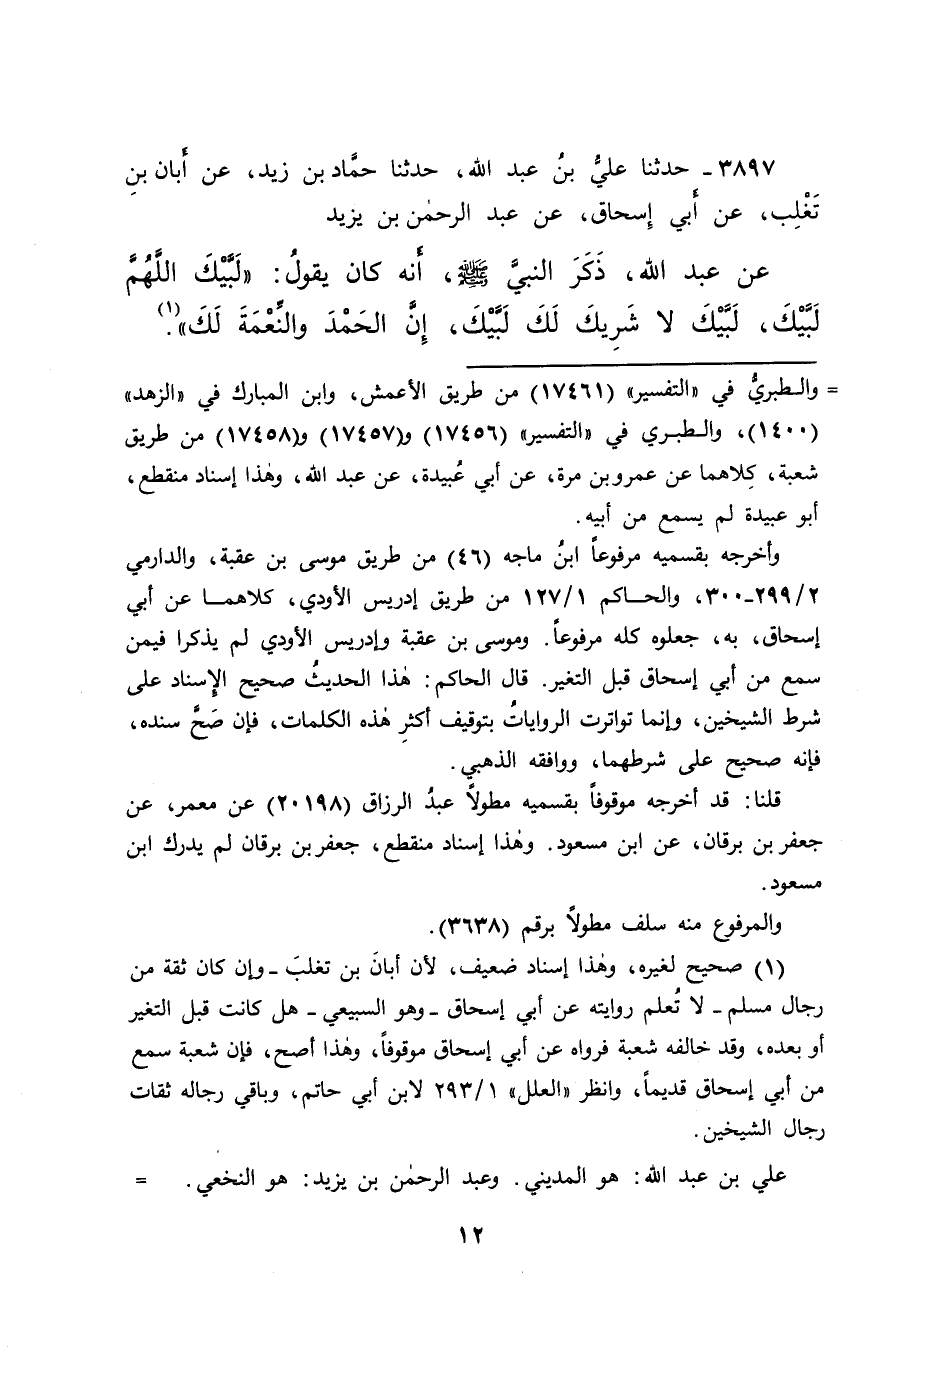 ٣٨٩٧ ـ حدثنا عليُّ بنُ عبد الله، حدثنا حمَّاد بن زيد، عن أَبان بنِ
تَغْلِب، عن أَبي إِسحاق، عن عبد الرحمٰن بن يزيد
عن عبد الله، ذَكَرَ النبيَّ ﷺ، أَنه كان يقولُ: «لَبَّيْكَ اللَّهُمَّ
لَبَّيْكَ، لَبَّيْكَ لا شَرِيكَ لَكَ لَبَّيْكَ، إِنَّ الحَمْدَ والنِّعْمَةَ لَكَ»(١).
= والطبريُّ في «التفسير» (١٧٤٦١) من طريق الأعمش، وابن المبارك في «الزهد»
(١٤٠٠)، والطبري في «التفسير» (١٧٤٥٦) و(١٧٤٥٧) و(١٧٤٥٨) من طريق
شعبة، كِلاهما عن عمرو بن مرة، عن أبي عُبيدة، عن عبد الله، وهٰذا إسناد منقطع،
أبو عبيدة لم يسمع من أبيه.
وأخرجه بقسميه مرفوعاً ابنُ ماجه (٤٦) من طريق موسى بن عقبة، والدارمي
٢/٢٩٩-٣٠٠، والحاكم ١/١٢٧ من طريق إدريس الأودي، كلاهما عن أبي
إسحاق، به، جعلوه كله مرفوعاً. وموسى بن عقبة وإدريس الأودي لم يذكرا فيمن
سمع من أبي إسحاق قبل التغير. قال الحاكم: هٰذا الحديثُ صحيح الإِسناد على
شرط الشيخين، وإنما تواترت الرواياتُ بتوقيف أكثرِ هٰذه الكلمات، فإن صَحَّ سنده،
فإنه صحيح على شرطهما، ووافقه الذهبي.
قلنا: قد أخرجه موقوفاً بقسميه مطولاً عبدُ الرزاق (٢٠١٩٨) عن معمر، عن
جعفر بن برقان، عن ابن مسعود. وهٰذا إسناد منقطع، جعفر بن برقان لم يدرك ابن
مسعود.
والمرفوع منه سلف مطولاً برقم (٣٦٣٨).
(١) صحيح لغيره، وهٰذا إسناد ضعيف، لأن أبانَ بن تغلبَ ـ وإن كان ثقة من
رجال مسلم ـ لا تُعلم روايته عن أبي إسحاق ـ وهو السبيعي ـ هل كانت قبل التغير
أو بعده، وقد خالفه شعبة فرواه عن أبي إسحاق موقوفاً، وهٰذا أصح، فإن شعبة سمع
من أبي إسحاق قديماً، وانظر «العلل» ١/٢٩٣ لابن أبي حاتم، وباقي رجاله ثقات
رجال الشيخين.
علي بن عبد الله: هو المديني. وعبد الرحمٰن بن يزيد: هو النخعي. =
١٢